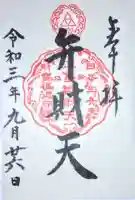 奉拝
弁財天
令和三年九月廿六日